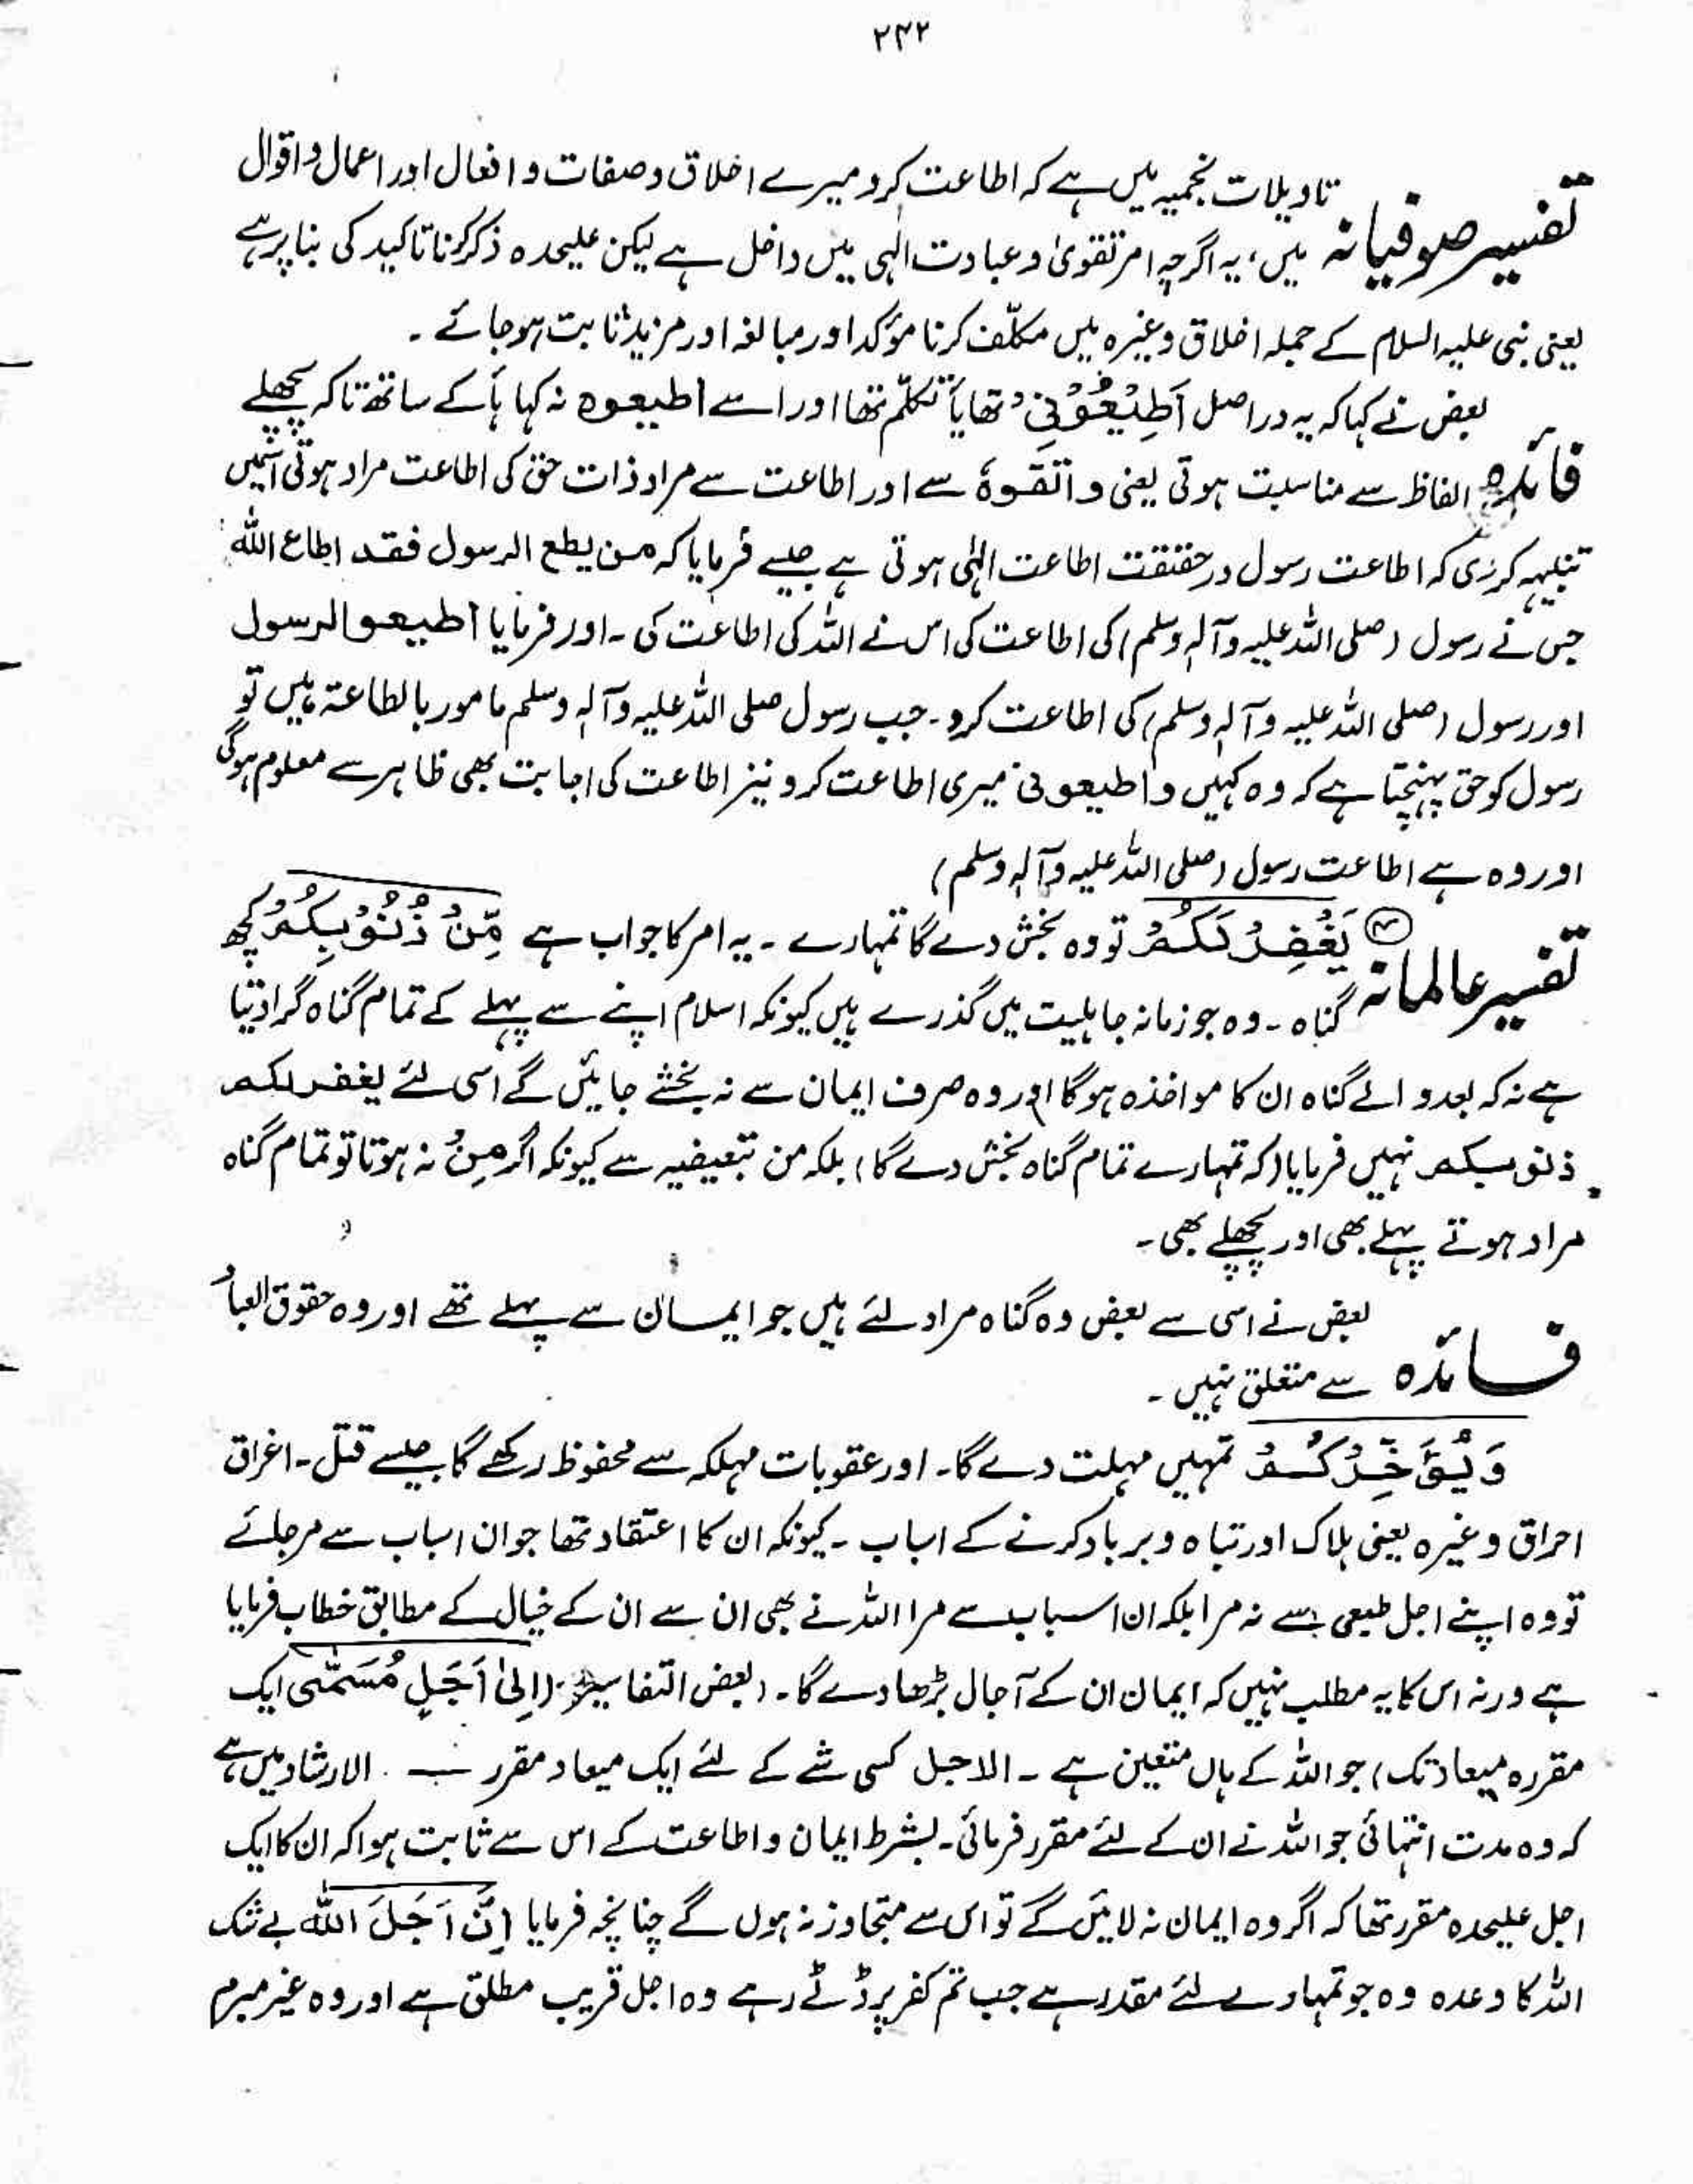 ۲۴۲
تفسیر صوفیانہ تاویلات نجمیہ میں ہے کہ اطاعت کرو میرے اخلاق و صفات و افعال اور اعمال و اقوال
میں، یہ اگرچہ امر تقویٰ و عبادت الٰہی میں داخل ہے لیکن علیحدہ ذکر کرنا تاکید کی بنا پر ہے
یعنی نبی علیہ السلام کے جملہ اخلاق وغیرہ میں مکلّف کرنا مؤکد اور مبالغہ اور مزید ثابت ہوجائے ۔
فائدہ بعض نے کہا کہ یہ دراصل اَطِیْعُوْنِیْ تھا یائے تکلّم تھا اور اسے اطیعوہ نہ کہا ہا کے ساتھ تاکہ پچھلے
الفاظ سے مناسبت ہوتی یعنی واتقوہُ سے اور اطاعت سے مراد ذات حق کی اطاعت مراد ہوتی اسمیں
تنبیہہ کردی کہ اطاعت رسول درحقیقت اطاعت الٰہی ہوتی ہے جیسے فرمایا کہ من یطع الرسول فقد اطاع اللہ
جس نے رسول (صلی اللہ علیہ وآلہ وسلم) کی اطاعت کی اس نے اللہ کی اطاعت کی ۔ اور فرمایا اطیعوالرسول
اور رسول (صلی اللہ علیہ وآلہ وسلم) کی اطاعت کرو ۔ جب رسول صلی اللہ علیہ وآلہ وسلم مامور بالطاعۃ ہیں تو
رسول کو حق پہنچتا ہے کہ وہ کہیں واطیعونی میری اطاعت کرو نیز اطاعت کی اجابت بھی ظاہر سے معلوم ہوگی
اور وہ ہے اطاعت رسول (صلی اللہ علیہ وآلہ وسلم)
تفسیر عالمانہ یَغْفِرْ لَکُمْ تو وہ بخش دے گا تمہارے ۔ یہ امر کا جواب ہے مِّنْ ذُنُوْبِکُمْ کچھ
گناہ ۔ وہ جو زمانہ جاہلیت میں گذرے ہیں کیونکہ اسلام اپنے سے پہلے کے تمام گناہ گرادیتا
ہے نہ کہ بعد والے گناہ ان کا مواخذہ ہوگا اور وہ صرف ایمان سے نہ بخشے جائیں گے اسی لئے یغفر لکم
ذنوبکم نہیں فرمایا (کہ تمہارے تمام گناہ بخش دے گا) بلکہ من تبعیضیہ سے کیونکہ اگر مِنْ نہ ہوتا تو تمام گناہ
مراد ہوتے پہلے بھی اور پچھلے بھی ۔
فائدہ بعض نے اسی سے بعض وہ گناہ مراد لئے ہیں جو ایمان سے پہلے تھے اور وہ حقوق العباد
سے متعلق نہیں ۔
وَیُؤَخِّرْکُمْ تمہیں مہلت دے گا ۔ اور عقوبات مہلکہ سے محفوظ رکھے گا جیسے قتل ۔ اغراق
احراق وغیرہ یعنی ہلاک اور تباہ و برباد کرنے کے اسباب ۔ کیونکہ ان کا اعتقاد تھا جو ان اسباب سے مرجائے
تو وہ اپنے اجل طبعی سے نہ مرا بلکہ ان اسباب سے مرا اللہ نے بھی ان سے ان کے خیال کے مطابق خطاب فرمایا
ہے ورنہ اس کا یہ مطلب نہیں کہ ایمان ان کے آجال بڑھادے گا ۔ (بعض التفاسیر) (اِلیٰ اَجَلٍ مُّسَمًّی ایک
مقررہ میعاد تک) جو اللہ کے ہاں متعین ہے ۔ الاجل کسی شے کے لئے ایک میعاد مقرر ۔ الارشاد میں ہے
کہ وہ مدت انتہائی جو اللہ نے ان کے لئے مقرر فرمائی ۔ بشرط ایمان و اطاعت کے اس سے ثابت ہوا کہ ان کا ایک
اجل علیحدہ مقرر تھا کہ اگر وہ ایمان نہ لائیں گے تو اس سے متجاوز نہ ہوں گے چنانچہ فرمایا اِنَّ اَجَلَ اللہ بے شک
اللہ کا وعدہ وہ جو تمہارے لئے مقدر ہے جب تم کفر پر ڈٹے رہے وہ اجل قریب مطلق ہے اور وہ غیر مبرم